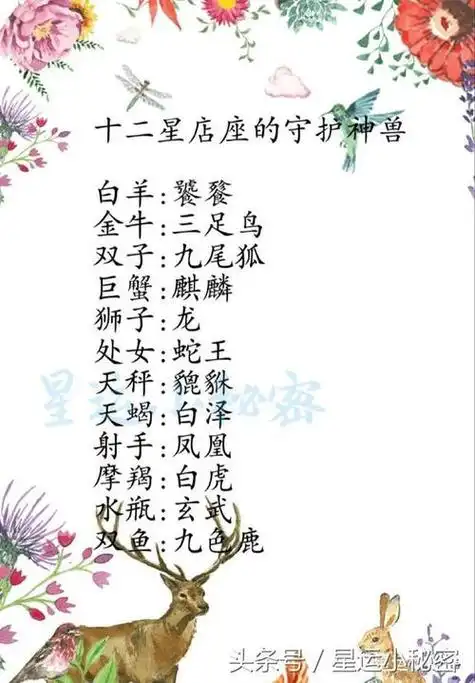 十二星店座的守护神兽
白羊:饕餮
金牛:三足鸟
双子:九尾狐
巨蟹:麒麟
狮子:龙
处女:蛇王
天秤:貔貅
天蝎:白泽
射手:凤凰
摩羯:白虎
水瓶:玄武
双鱼:九色鹿
星运小秘密
头条号 / 星运小秘密